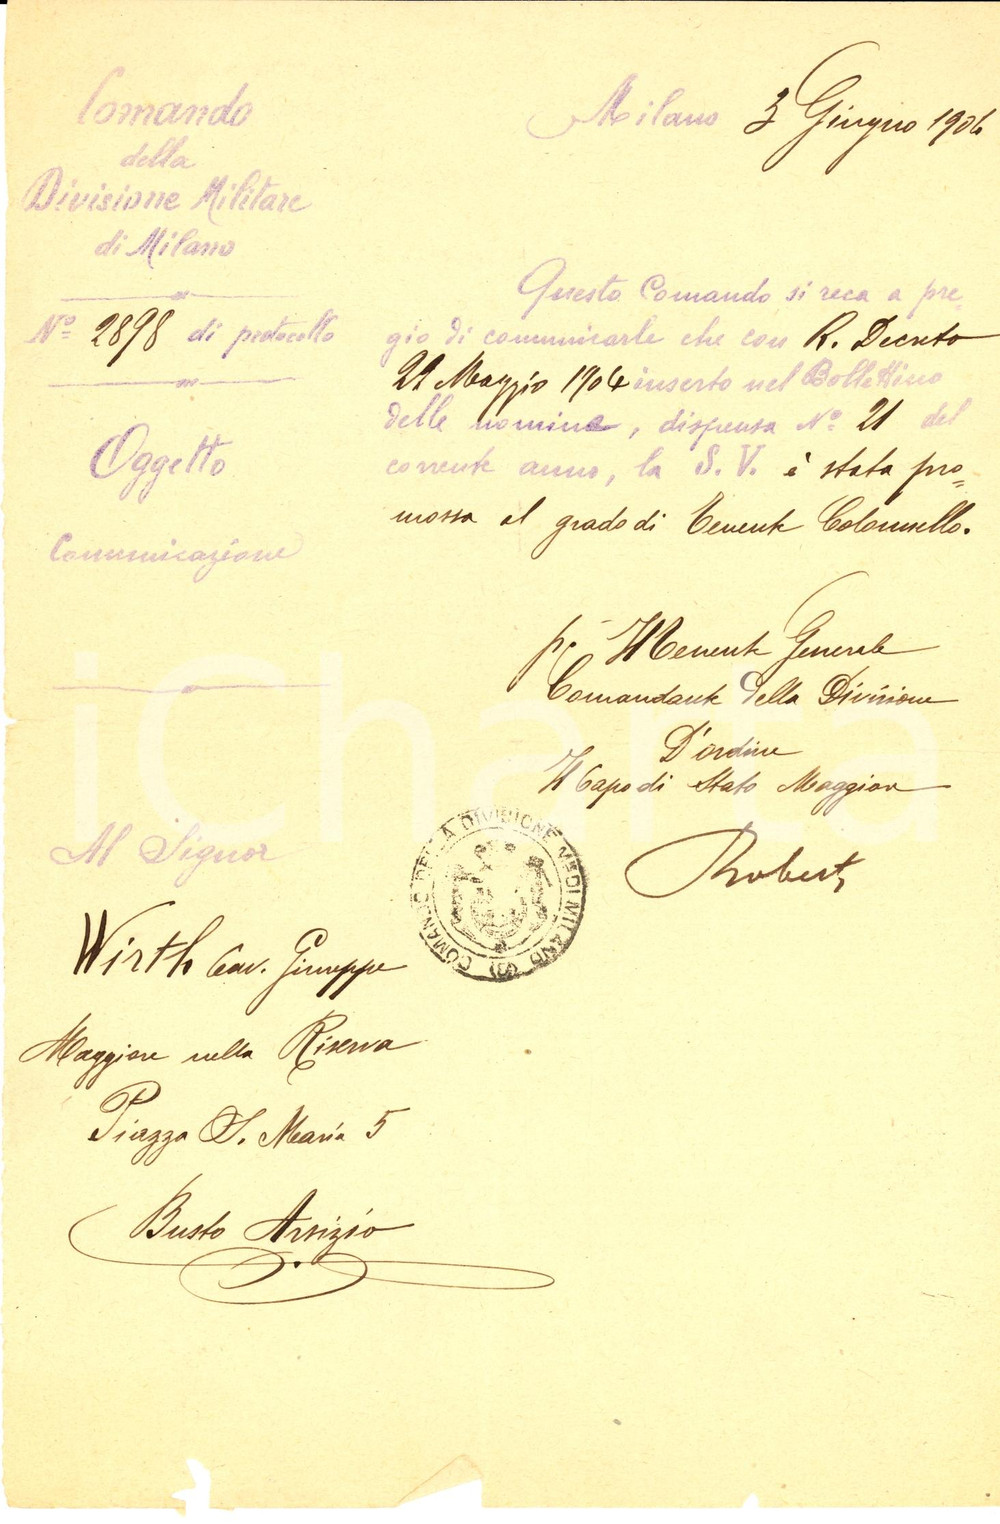 Comando
della
Divisione Militare
di Milano
Nº 2898 di protocollo
Oggetto
Comunicazione
Milano 3 Giugno 1904
Questo Comando si reca a pre=
gio di comunicarle che con R. Decreto
21 Maggio 1904 inserto nel Bollettino
delle nomine, dispensa Nº 21 del
corrente anno, la S. V. è stata pro=
mossa al grado di Tenente Colonnello.
p. Il Tenente Generale
Comandante della Divisione
D'ordine
Il Capo di Stato Maggiore
COMANDO DELLA DIVISIONE M. DI MILANO (3)
Al Signor
Wirth Cav. Giuseppe
Maggiore nella Riserva
Piazza S. Maria 5
Busto Arsizio
iCharta